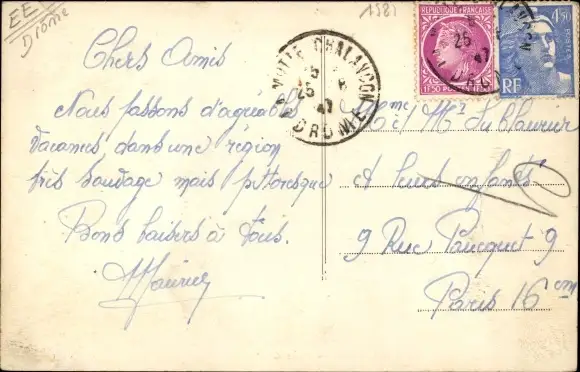 EE
Drome
1581
Chers Amis
Nous passons d'agréables
vacances dans une région
très sauvage mais pittoresque
Bons baisers à Tous.
Maurice
MOTTE CHALANCON
25 8
47
DROME
REPUBLIQUE FRANÇAISE
1F50 POSTES 1F50
4F50
POSTES
RF
Mme et Mr
A leurs enfants
9 Rue Faucquet 9
Paris 16em